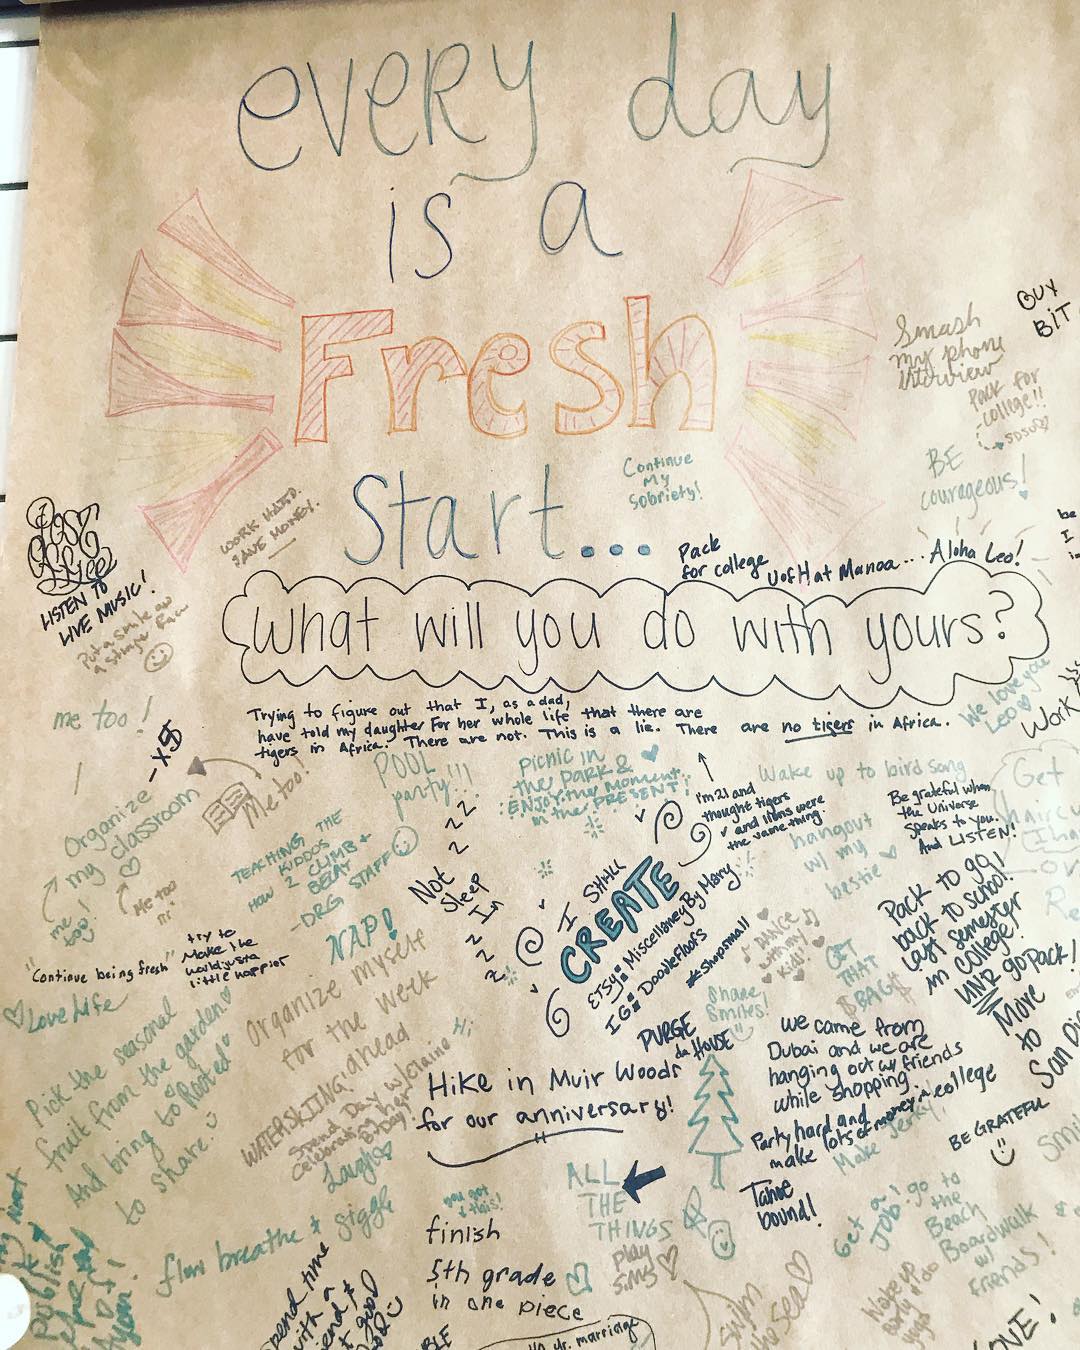 every day
is a
Fresh
Start...
What will you do with yours?
Continue
My
Sobriety!
WORK HARD.
SAVE MONEY.
Smash
my phone
interview
BUY
BIT
Pack for
college!!
SDSU
BE
courageous!
Pack
for college
U of H at Manoa... Aloha Leo!
LISTEN TO
LIVE MUSIC!
Put a smile on
a strange face
me too!
We love you
Leo
Work
Trying to figure out that I, as a dad,
have told my daughter for her whole life that there are
tigers in Africa. There are not. This is a lie. There are no tigers in Africa.
I'm 21 and
thought tigers
and lions were
the same thing.
POOL
party!!!
picnic in
the PARK &
ENJOY the moment
in the PRESENT!
Wake up to bird song
Be grateful when
the Universe
speaks to you.
And LISTEN!
hangout
w/ my
bestie
Organize
my classroom
Me too!
me too!
Me too
TEACHING THE
KIDDOS
HOW 2 CLIMB +
BELAY
-DRG STAFF
Not
Sleep
In
zzzz
zzzz
I SHALL
CREATE
ETSY: MiscellaneyByMary
IG: DoodleFloofs
#shopsmall
DANCE
with my
kid!
GET
THAT
$BAG$
Pack to go
back to school!
Last semester
in college!
UNR go pack!
NAP!
"Continue being fresh"
try to
Make the
world just a
little happier
Love Life
Organize myself
for the week
ahead
Share
Smiles!
PURGE
da HOUSE
We came from
Dubai and we are
hanging out w/ friends
while shopping.
More
to
San Di
Pick the seasonal
fruit from the garden
And bring to "Rooted"
to share
Hi
WATERSKIING!
Spend Day w/ elaine
celebrating her
Bday!
Hike in Muir Woods
for our anniversary!
Party hard and
make lots of money in college
Make Jerky!
BE GRATEFUL
Laugh
Giggle
ALL
THE
THINGS
Tahoe
bound!
you got
this!
finish
5th grade
in one piece
play
sims
Get a
JOB!
go to
the
Beach
Boardwalk
w/
friends!